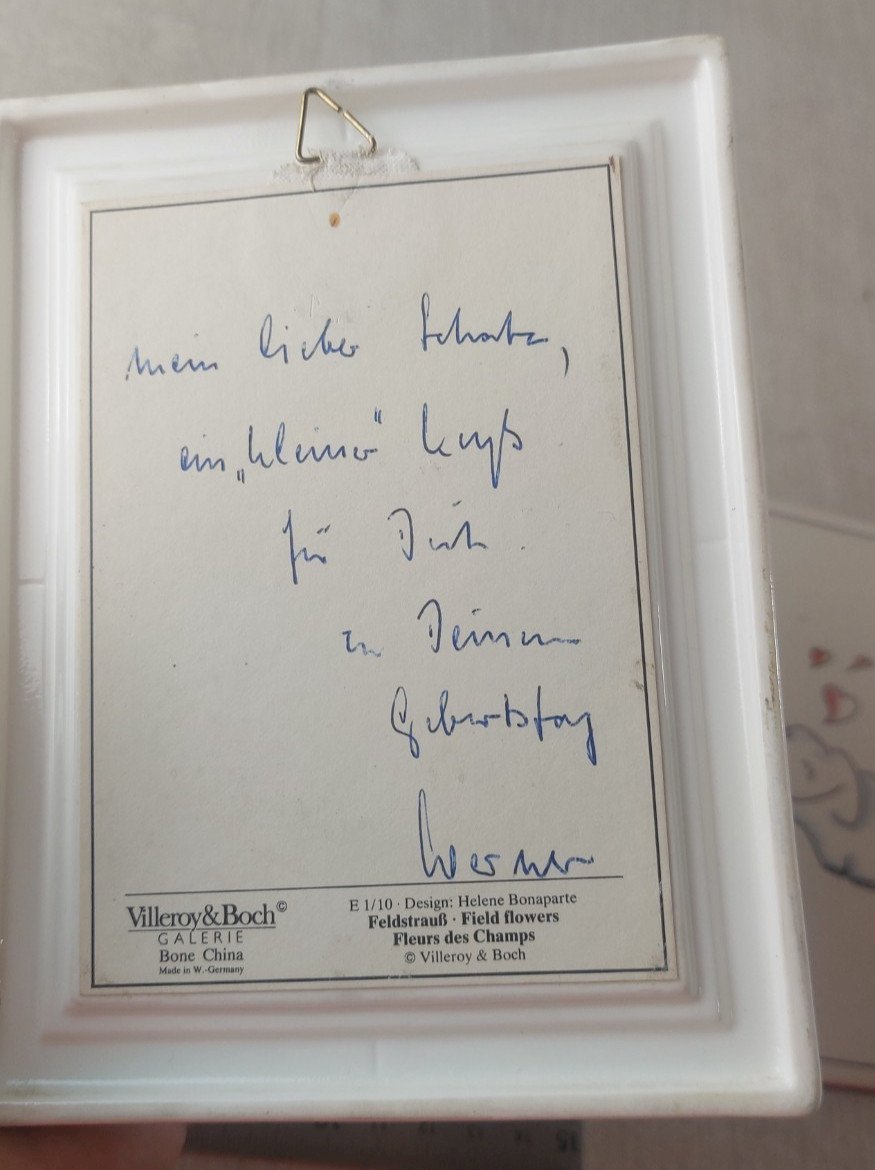 Mein lieber Schatz,
ein „kleiner" Kuß
für Dich
zu Deinem
Geburtstag
Werner
Villeroy&Boch©
GALERIE
Bone China
Made in W.-Germany
E 1/10 · Design: Helene Bonaparte
Feldstrauß · Field flowers
Fleurs des Champs
© Villeroy & Boch
15